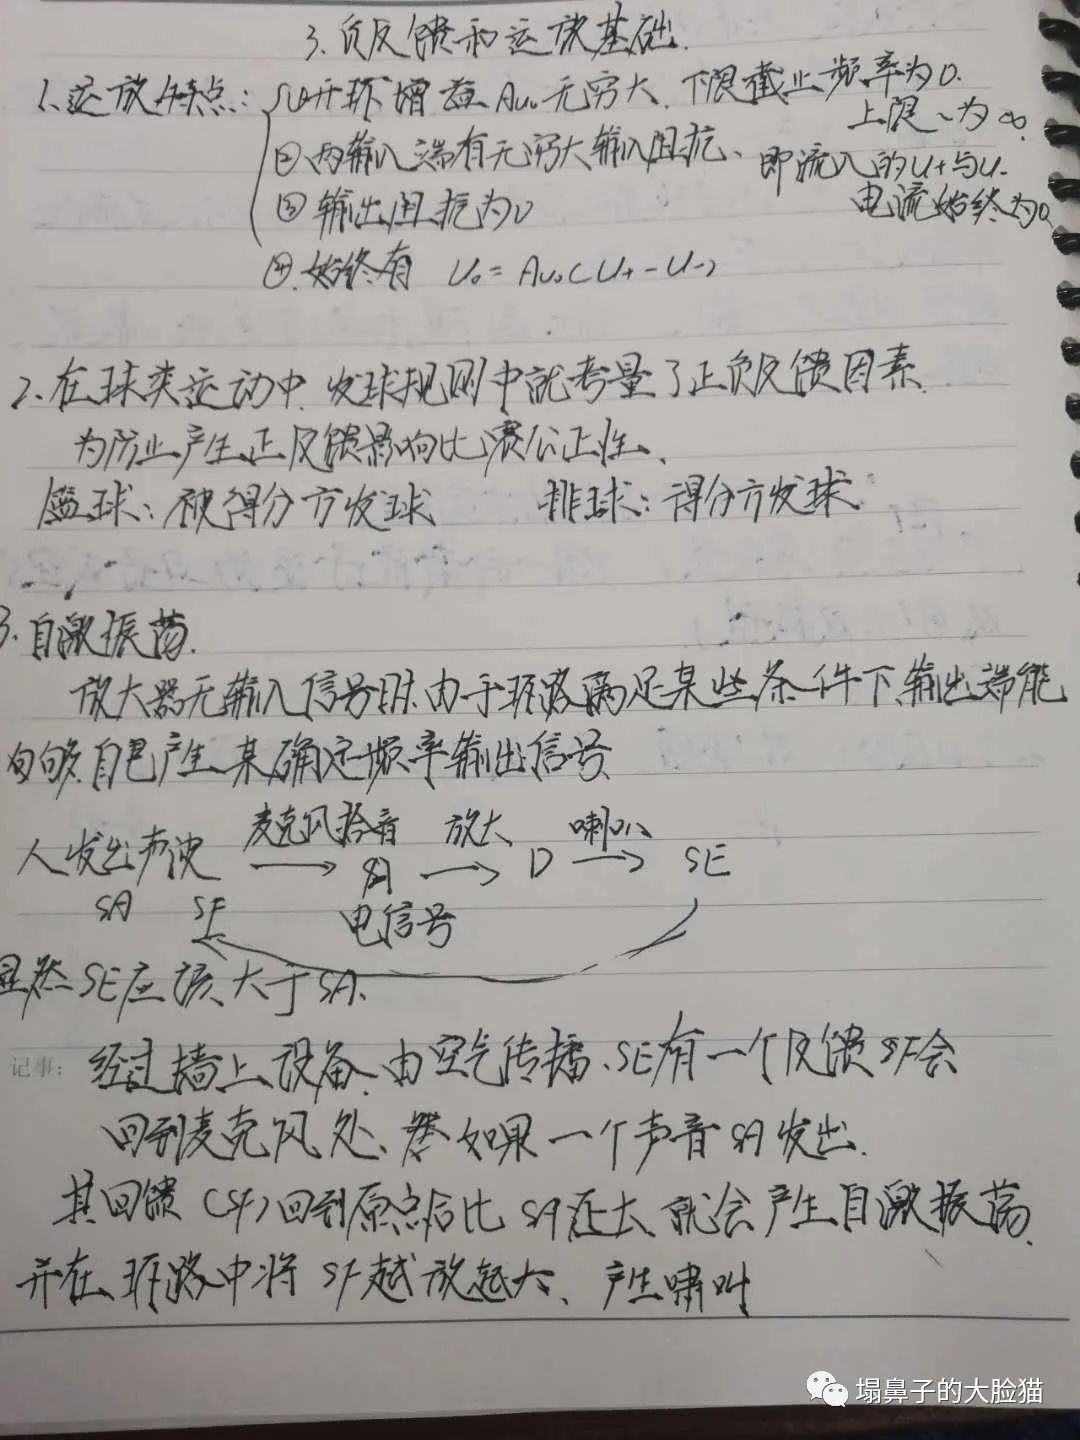 3.负反馈和运放基础.
1.运放特点: ①开环增益Auo无穷大.下限截止频率为0.
上限~为∞.
②两输入端有无穷大输入阻抗、即流入的U+与U-
电流始终为0.
③输出阻抗为0
④.始终有 Uo=Auo(U+-U-)
2.在球类运动中.发球规则中就考量了正负反馈因素.
为防止产生正反馈影响比赛公正性.
篮球:被得分方发球 排球:得分方发球
3.自激振荡.
放大器无输入信号时.由于环路满足某些条件下输出端能
够自己产生某确定频率输出信号
麦克风拾音 放大 喇叭
人发出声波 → SA → D → SE
SA SF 电信号
显然SE应该大于SA.
记事:
经过墙上设备.由空气传播.SE有一个反馈SF会
回到麦克风处、如果一个声音SA发出.
其回馈(SF)回到原点后比SA还大.就会产生自激振荡.
并在环路中将SF越放越大、产生啸叫
塌鼻子的大脸猫